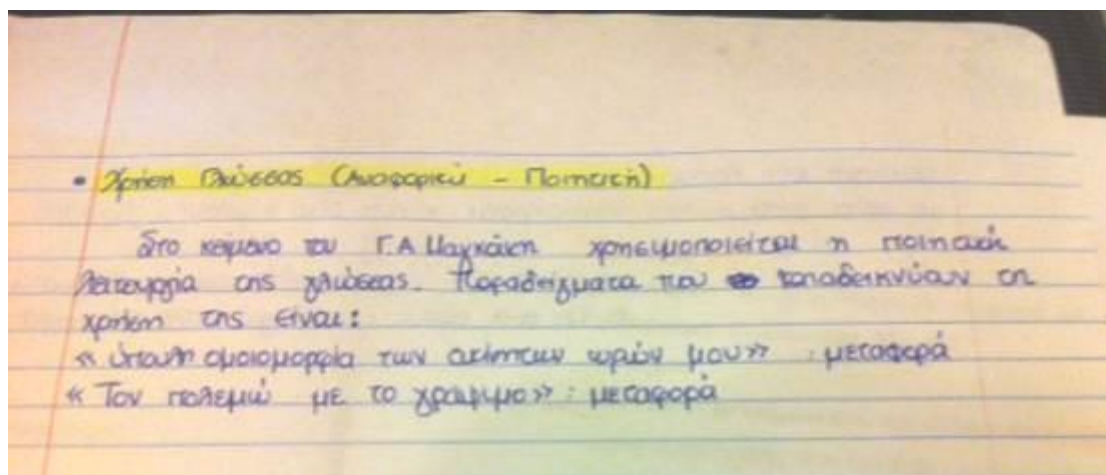 • Χρήση Γλώσσας (Αναφορική - Ποιητική)
Στο κείμενο του Γ.Α Μαγκάκη χρησιμοποιείται η ποιητική
λειτουργία της γλώσσας. Παραδείγματα που καταδεικνύουν τη
χρήση της είναι:
« ύπουλη ομοιομορφία των ακίνητων ωρών μου» : μεταφορά
« Τον πολεμώ με το γράψιμο» : μεταφορά